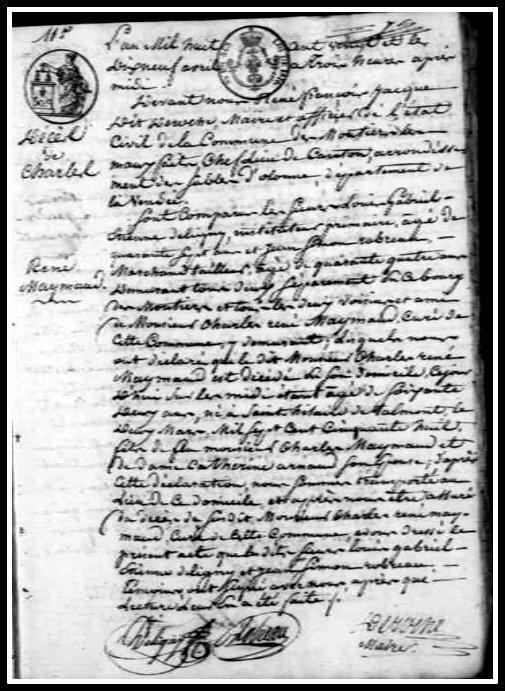 115
Décès
de
Charles
René
Maymaud.
L'an Mil huit cent vingt et le
Dixneuf avril a Trois heures après
midi
Devant nous René françois Jacque
Dit Deroche, Maire et officier de l'état
Civil de la Commune des Moutiers les
maux faits Chef Lieu de Canton, arrondisse-
ment des Sables d'olonne, département de
la Vendée.
Sont Comparu les Sieurs Louis Gabriel-
Etienne deligny, instituteur primaire, agé de
quarante Sept ans et Jean Simon robreau, -
Marchand tailleur, agé de quarante quatre ans
Demeurant tous deux Séparément Ce bourg
des Moutiers et tous les deux Voisins et amis
de Monsieur Charles rené Maymaud, Curé de
Cette Commune, y demeurant; Lesquels nous
ont déclaré que le dit Monsieur Charles rené
Maymaud est décédé domicile, Cejour
D'hui Sur les midi étant agé de Soixante
Deux ans, né à Saint hilaire de Talmont, le
Deux Mars Mil Sept Cent Cinquante huit,
fils de feu monsieur Charles Maymaud et
de dame Catherine arnaud Son épouse; d'après
Cette déclaration, nous Sommes transporté au
Lieu de Ce domicile et après nous être assuré
du décès du Susdit Monsieur Charles rené may-
maud, Curé de Cette Commune, avons dressé le
présent acte que les dits Sieurs louis gabriel-
Etienne deligny et jean Simon robreau, -
Témoins, ont Signé avec nous, après que -
Lecture Leur en a été faite /.
Deligny Robreau Deroche
Maire